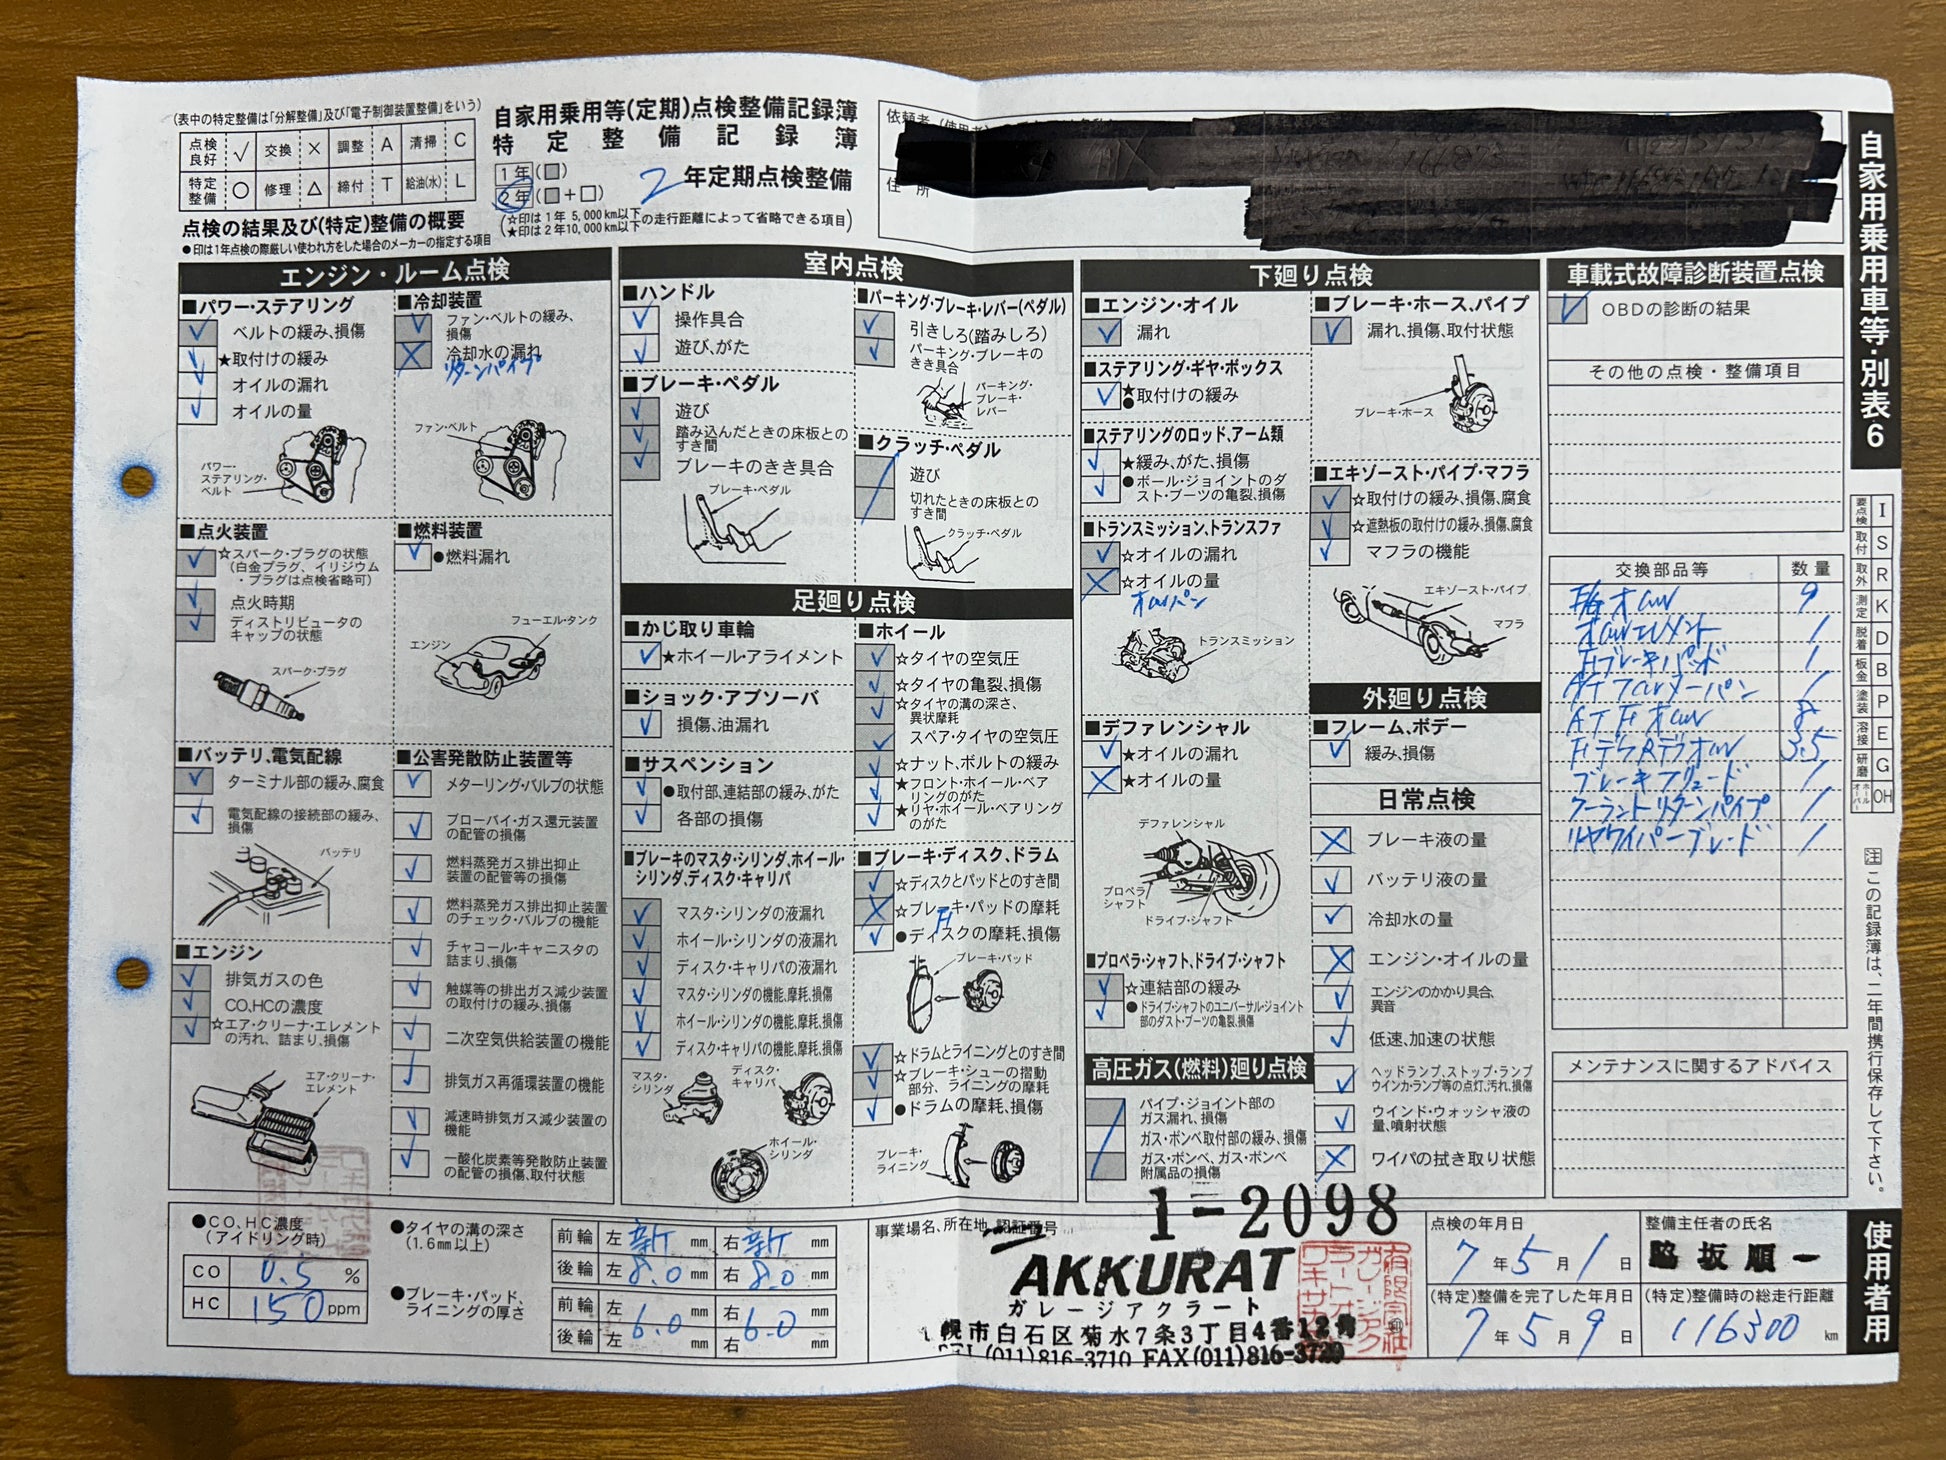 (表中の特定整備は「分解整備」及び「電子制御装置整備」をいう)
点検良好 ✓ 交換 × 調整 A 清掃 C
特定整備 ○ 修理 △ 締付 T 給油(水) L
自家用乗用等(定期)点検整備記録簿
特定整備記録簿
1年(□)
2年(□+□)
2 年定期点検整備
(☆印は1年 5,000km以下
★印は2年10,000km以下の走行距離によって省略できる項目)
点検の結果及び(特定)整備の概要
●印は1年点検の際厳しい使われ方をした場合のメーカーの指定する項目
依頼者(使用者)
住所
自家用乗用車等・別表6
エンジン・ルーム点検
■パワー・ステアリング
ベルトの緩み、損傷
★取付けの緩み
オイルの漏れ
オイルの量
パワー・ステアリング・ベルト
■冷却装置
ファン・ベルトの緩み、損傷
冷却水の漏れ
リターンパイプ
ファン・ベルト
■点火装置
☆スパーク・プラグの状態
(白金プラグ、イリジウム・プラグは点検省略可)
点火時期
ディストリビュータのキャップの状態
スパーク・プラグ
■燃料装置
●燃料漏れ
フューエル・タンク
エンジン
■バッテリ、電気配線
ターミナル部の緩み、腐食
電気配線の接続部の緩み、損傷
バッテリ
■公害発散防止装置等
メターリング・バルブの状態
ブローバイ・ガス還元装置の配管の損傷
燃料蒸発ガス排出抑止装置の配管等の損傷
燃料蒸発ガス排出抑止装置のチェック・バルブの機能
チャコール・キャニスタの詰まり、損傷
触媒等の排出ガス減少装置の取付けの緩み、損傷
二次空気供給装置の機能
排気ガス再循環装置の機能
減速時排気ガス減少装置の機能
一酸化炭素等発散防止装置の配管の損傷、取付状態
■エンジン
排気ガスの色
CO、HCの濃度
☆エア・クリーナ・エレメントの汚れ、詰まり、損傷
エア・クリーナ・エレメント
室内点検
■ハンドル
操作具合
遊び、がた
■ブレーキ・ペダル
遊び
踏み込んだときの床板とのすき間
ブレーキのきき具合
ブレーキ・ペダル
■パーキング・ブレーキ・レバー(ペダル)
引きしろ(踏みしろ)
パーキング・ブレーキのきき具合
パーキング・ブレーキ・レバー
■クラッチ・ペダル
遊び
切れたときの床板とのすき間
クラッチ・ペダル
足廻り点検
■かじ取り車輪
★ホイール・アライメント
■ショック・アブソーバ
損傷、油漏れ
■サスペンション
●取付部、連結部の緩み、がた
各部の損傷
■ブレーキのマスタ・シリンダ、ホイール・シリンダ、ディスク・キャリパ
マスタ・シリンダの液漏れ
ホイール・シリンダの液漏れ
ディスク・キャリパの液漏れ
マスタ・シリンダの機能、摩耗、損傷
ホイール・シリンダの機能、摩耗、損傷
ディスク・キャリパの機能、摩耗、損傷
マスタ・シリンダ
ディスク・キャリパ
ホイール・シリンダ
■ホイール
☆タイヤの空気圧
☆タイヤの亀裂、損傷
☆タイヤの溝の深さ、異状摩耗
スペア・タイヤの空気圧
☆ナット、ボルトの緩み
★フロント・ホイール・ベアリングのがた
★リヤ・ホイール・ベアリングのがた
■ブレーキ・ディスク、ドラム
☆ディスクとパッドとのすき間
☆ブレーキ・パッドの摩耗
Fr
●ディスクの摩耗、損傷
ブレーキ・パッド
☆ドラムとライニングとのすき間
☆ブレーキ・シューの摺動部分、ライニングの摩耗
●ドラムの摩耗、損傷
ブレーキ・ライニング
下廻り点検
■エンジン・オイル
漏れ
■ステアリング・ギヤ・ボックス
★●取付けの緩み
■ステアリングのロッド、アーム類
★緩み、がた、損傷
●ボール・ジョイントのダスト・ブーツの亀裂、損傷
■トランスミッション、トランスファ
☆オイルの漏れ
☆オイルの量
オイルパン
トランスミッション
■デファレンシャル
★オイルの漏れ
★オイルの量
デファレンシャル
プロペラシャフト
ドライブ・シャフト
■プロペラ・シャフト、ドライブ・シャフト
☆連結部の緩み
●ドライブ・シャフトのユニバーサル・ジョイント部のダスト・ブーツの亀裂、損傷
高圧ガス(燃料)廻り点検
パイプ・ジョイント部のガス漏れ、損傷
ガス・ボンベ取付部の緩み、損傷
ガス・ボンベ、ガス・ボンベ附属品の損傷
■ブレーキ・ホース、パイプ
漏れ、損傷、取付状態
ブレーキ・ホース
■エキゾースト・パイプ・マフラ
☆取付けの緩み、損傷、腐食
☆遮熱板の取付けの緩み、損傷、腐食
マフラの機能
エキゾースト・パイプ
マフラ
外廻り点検
■フレーム、ボデー
緩み、損傷
日常点検
ブレーキ液の量
バッテリ液の量
冷却水の量
エンジン・オイルの量
エンジンのかかり具合、異音
低速、加速の状態
ヘッドランプ、ストップ・ランプ
ウインカ・ランプ等の点灯、汚れ、損傷
ウインド・ウォッシャ液の量、噴射状態
ワイパの拭き取り状態
車載式故障診断装置点検
OBDの診断の結果
その他の点検・整備項目
交換部品等 数量
E/Gオイル 9
オイルエレメント 1
Frブレーキパッド 1
ATフィルターパン 1
ATFオイル 8
FrデフRrデフオイル 3.5
ブレーキフリュード 1
クーラントリターンパイプ 1
リヤワイパーブレード 1
メンテナンスに関するアドバイス
要点検 I
取付 S
取外 R
測定 K
脱着 D
板金 B
塗装 P
溶接 E
研磨 G
オーバーホール OH
注 この記録簿は、二年間携行保存して下さい。
使用者用
●CO、HC濃度(アイドリング時)
CO 0.5 %
HC 150 ppm
●タイヤの溝の深さ(1.6mm以上)
前輪 左 新 mm 右 新 mm
後輪 左 8.0 mm 右 8.0 mm
●ブレーキ・パッド、ライニングの厚さ
前輪 左 右
6.0 mm 6.0 mm
後輪 左 右
事業場名、所在地、認証番号
1-2098
AKKURAT
ガレージアクラート
幌市白石区菊水7条3丁目4番12号
TEL(011)816-3710 FAX(011)816-3720
点検の年月日
7年5月1日
整備主任者の氏名
脇坂順一
(特定)整備を完了した年月日
7年5月9日
(特定)整備時の総走行距離
116300 km